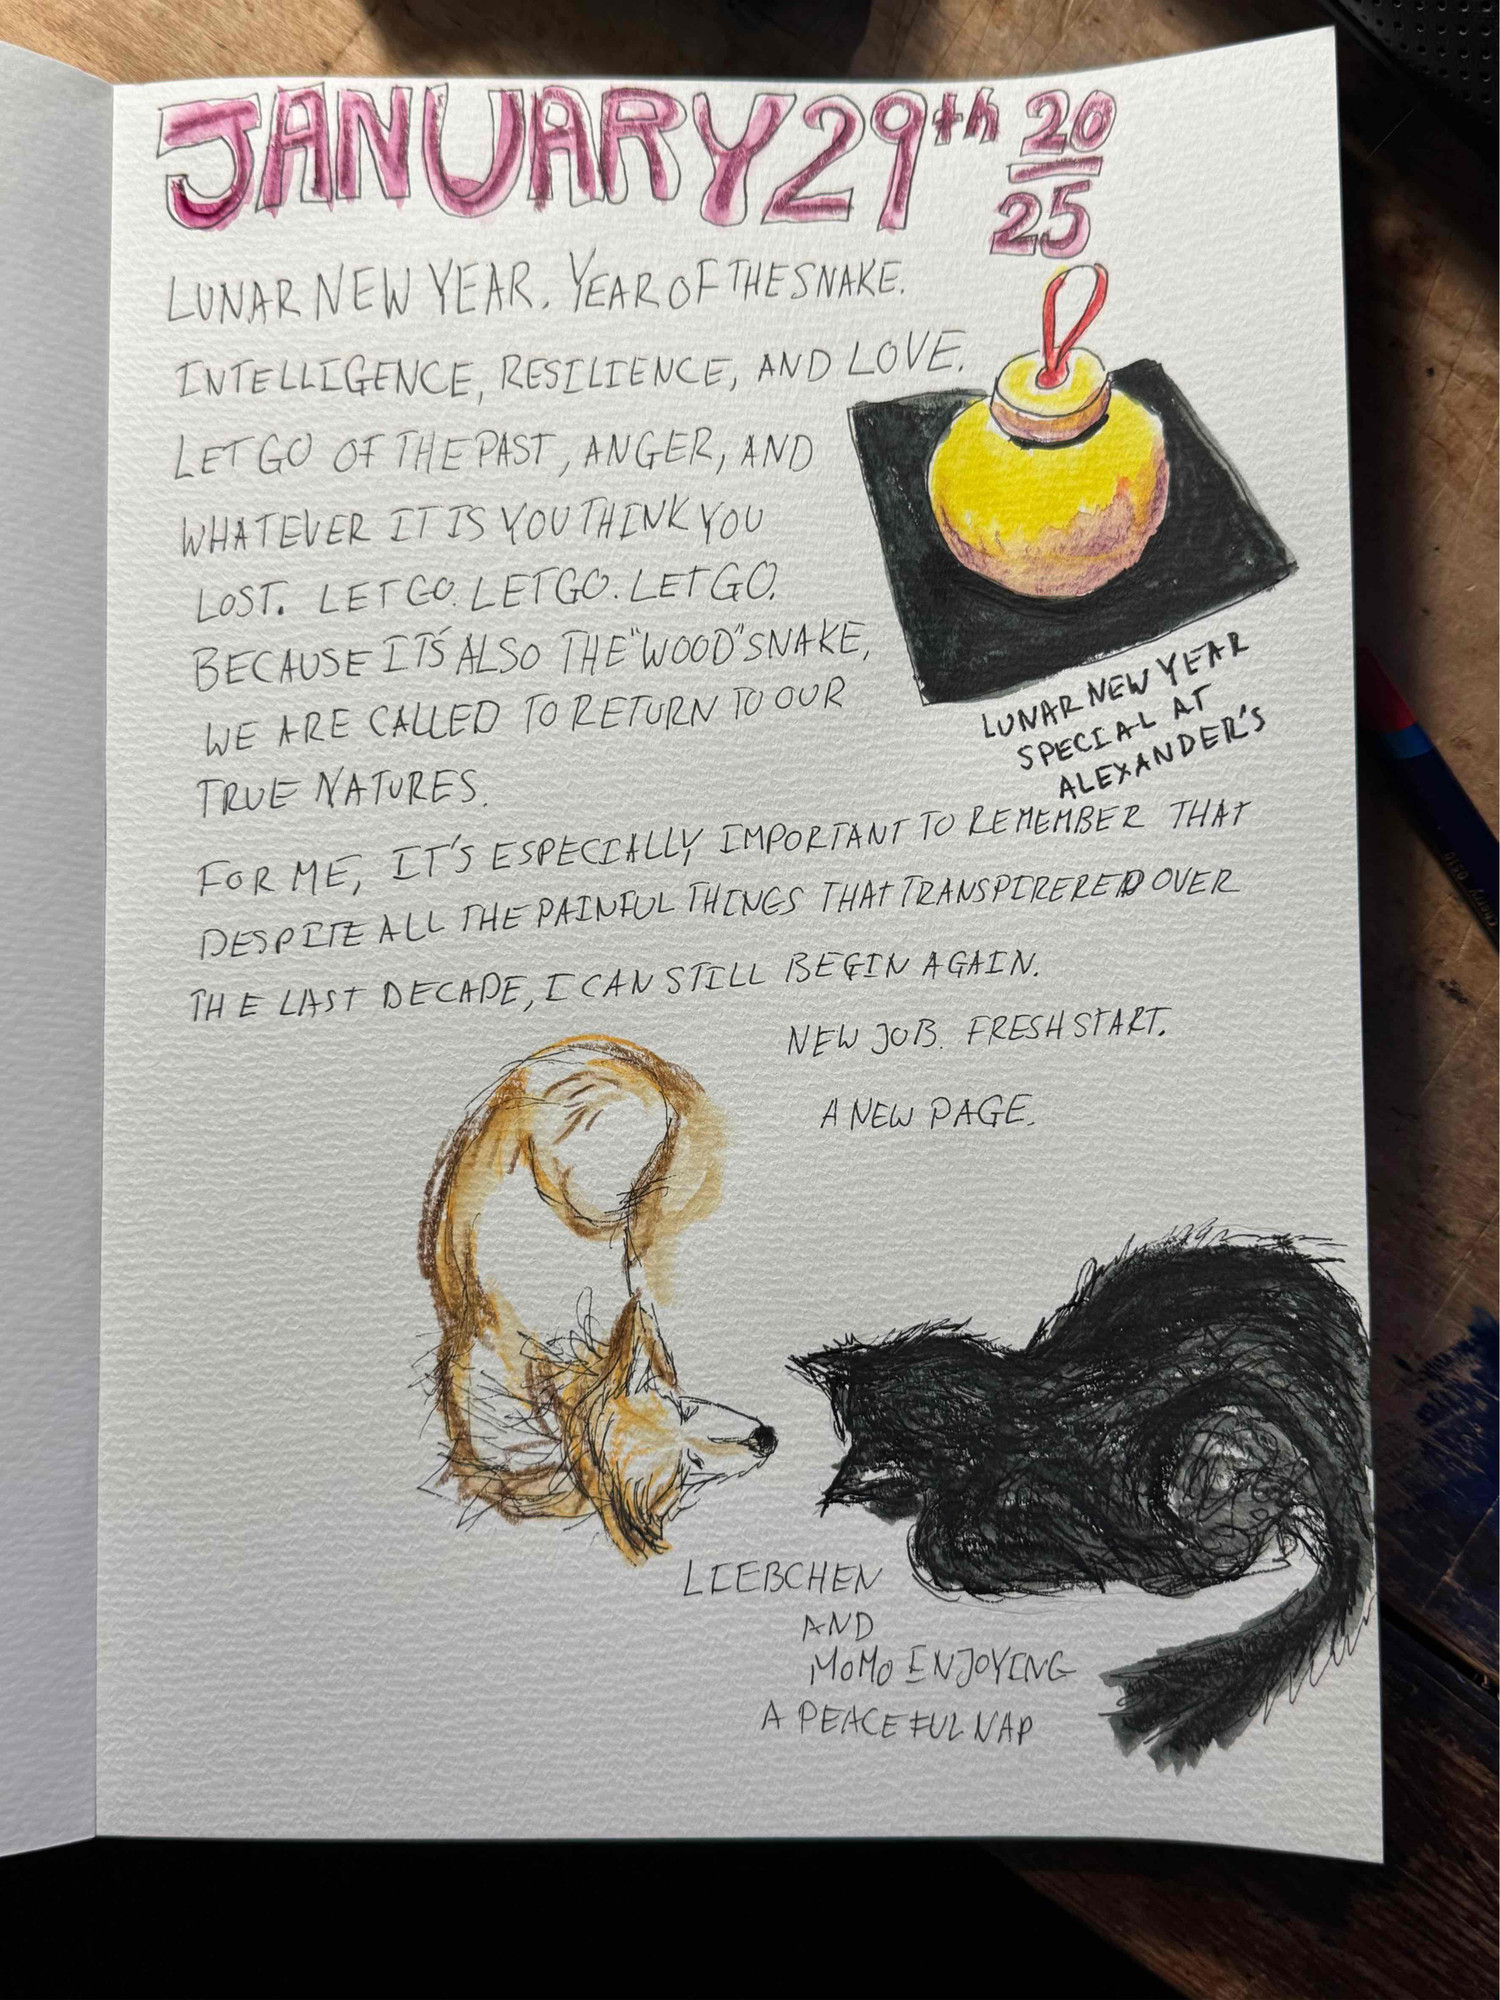 JANUARY 29th 20
25
LUNAR NEW YEAR. YEAR OF THE SNAKE.
INTELLIGENCE, RESILIENCE, AND LOVE.
LET GO OF THE PAST, ANGER, AND
WHATEVER IT IS YOU THINK YOU
LOST. LET GO. LET GO. LET GO.
BECAUSE IT'S ALSO THE "WOOD" SNAKE,
WE ARE CALLED TO RETURN TO OUR
TRUE NATURES.
LUNAR NEW YEAR
SPECIAL AT
ALEXANDER'S
FOR ME, IT'S ESPECIALLY IMPORTANT TO REMEMBER THAT
DESPITE ALL THE PAINFUL THINGS THAT TRANSPIRERED OVER
THE LAST DECADE, I CAN STILL BEGIN AGAIN.
NEW JOB. FRESH START.
A NEW PAGE.
LIEBCHEN
AND
MOMO ENJOYING
A PEACEFUL NAP